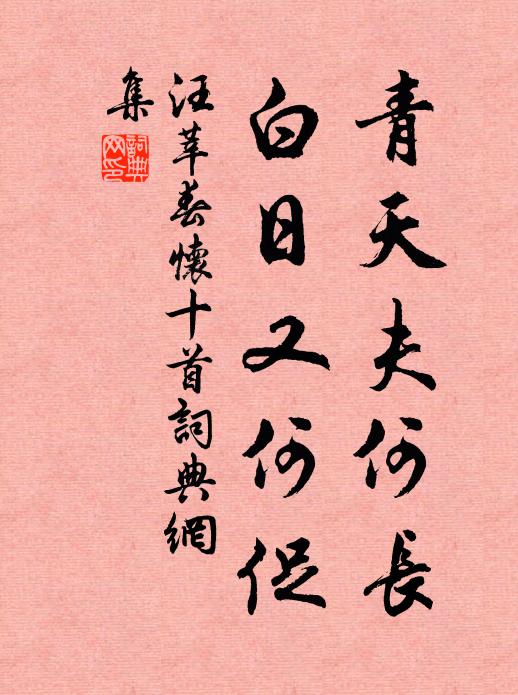 青天夫何長
白日又何促
汪莘春懷十首詞典網
集
詞典
网印